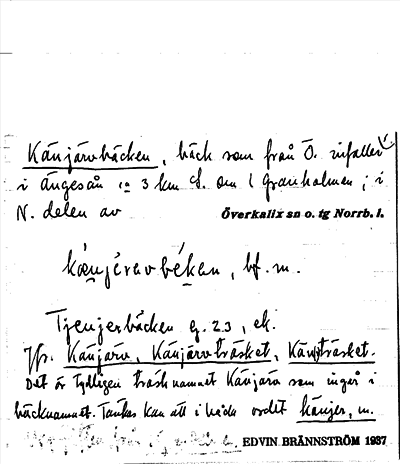 Känjärvbäcken, bäck som från Ö. infaller
i Ängesån ca 3 km S. om l Granholmen; i
N. delen av Överkalix sn o. tg Norrb. l.
kǽnjǽravbékan, bf. m.
Tjenjerbäcken g. 23, ek.
Jfr. Känjärv, Känjärvträsket, Känträsket.
Det är tydligen träsknamnet Känjärv som ingår i
bäcknamnet. Tankes kan att i båda ordet känjer, m.
EDVIN BRÄNNSTRÖM 1937